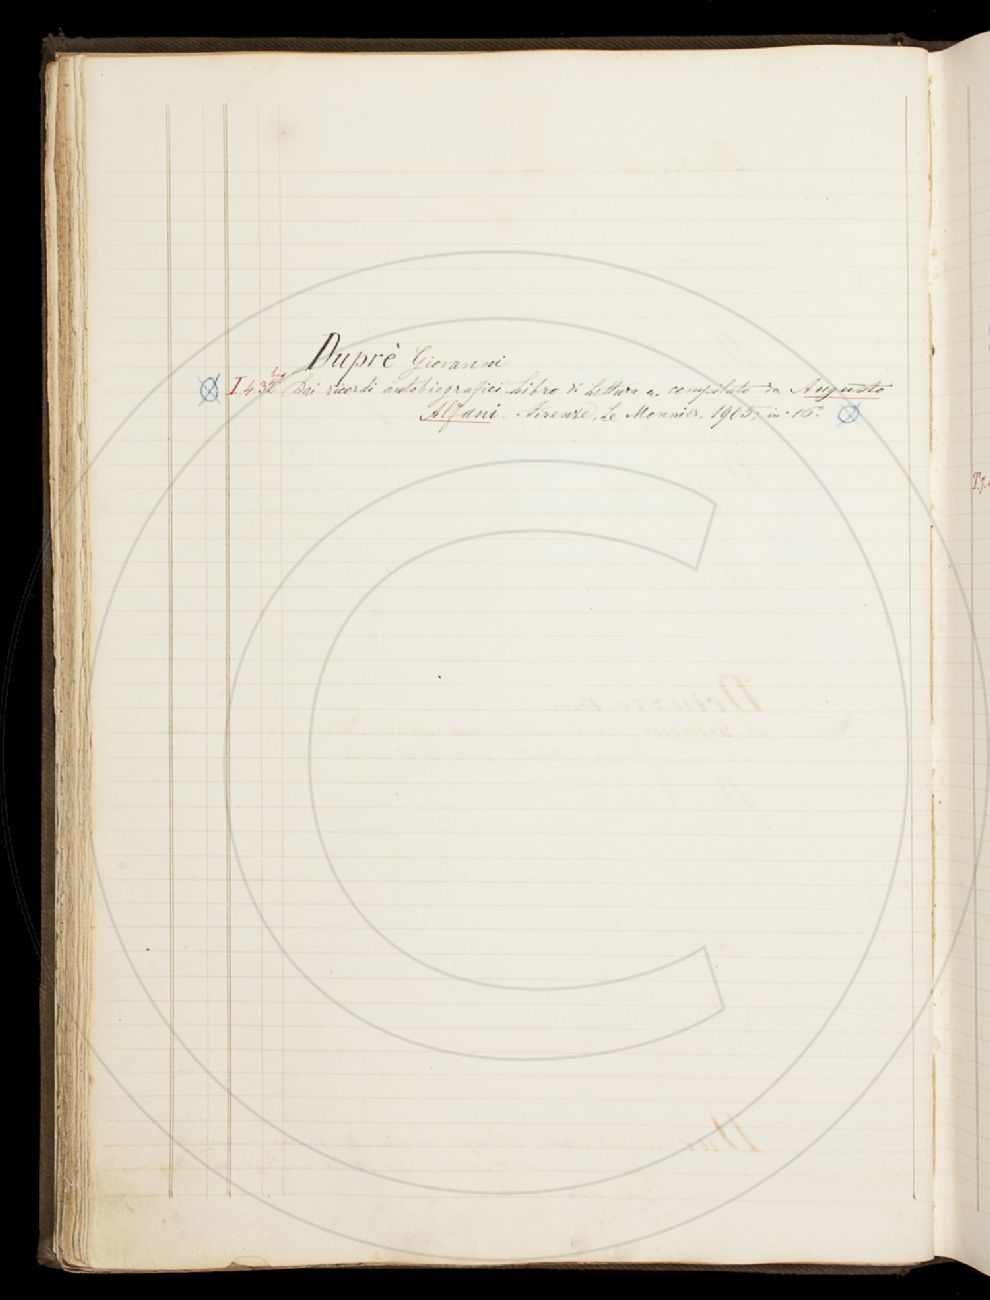 Duprè Giovanni
I.4.32 bis Dai ricordi autobiografici. Libro di Lettura compilato da Augusto
Alfani. Firenze, Le Monnier, 1905, in-16°